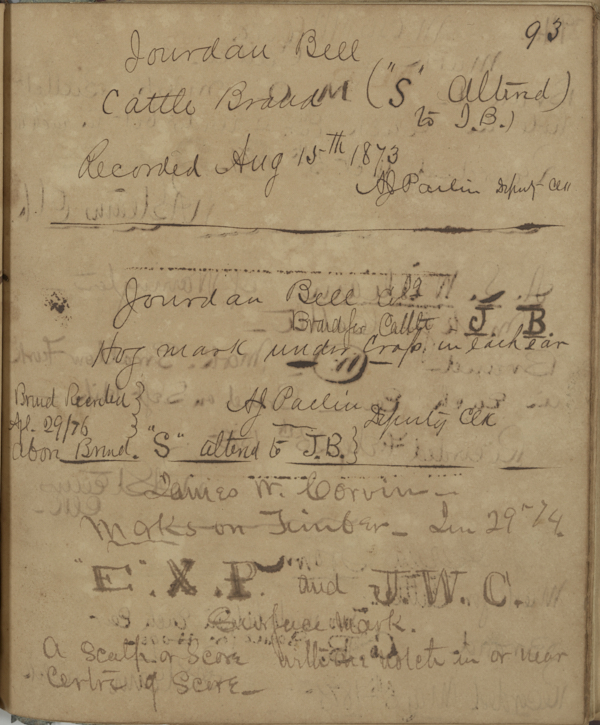 93
Jourdan Bell
Cattle Brand ("S" Altend)
to J.B.)
Recorded Aug 15th 1873
AJ Paclin Deputy Clk
Jourdan Bell
Brand for Cattle J. B.
Hog mark under Crop in each ear
Brand Recorded }
Apl. 29/76 }
AJ Paclin Deputy Clk
above Brand. "S" altend to J.B. }
James W. Corvin
Marks on Timber - Jan 29th 74.
"E. X. P." and J. W. C.
Surface Mark.
A Scalp or Score with one notch in or near
Centre of Score